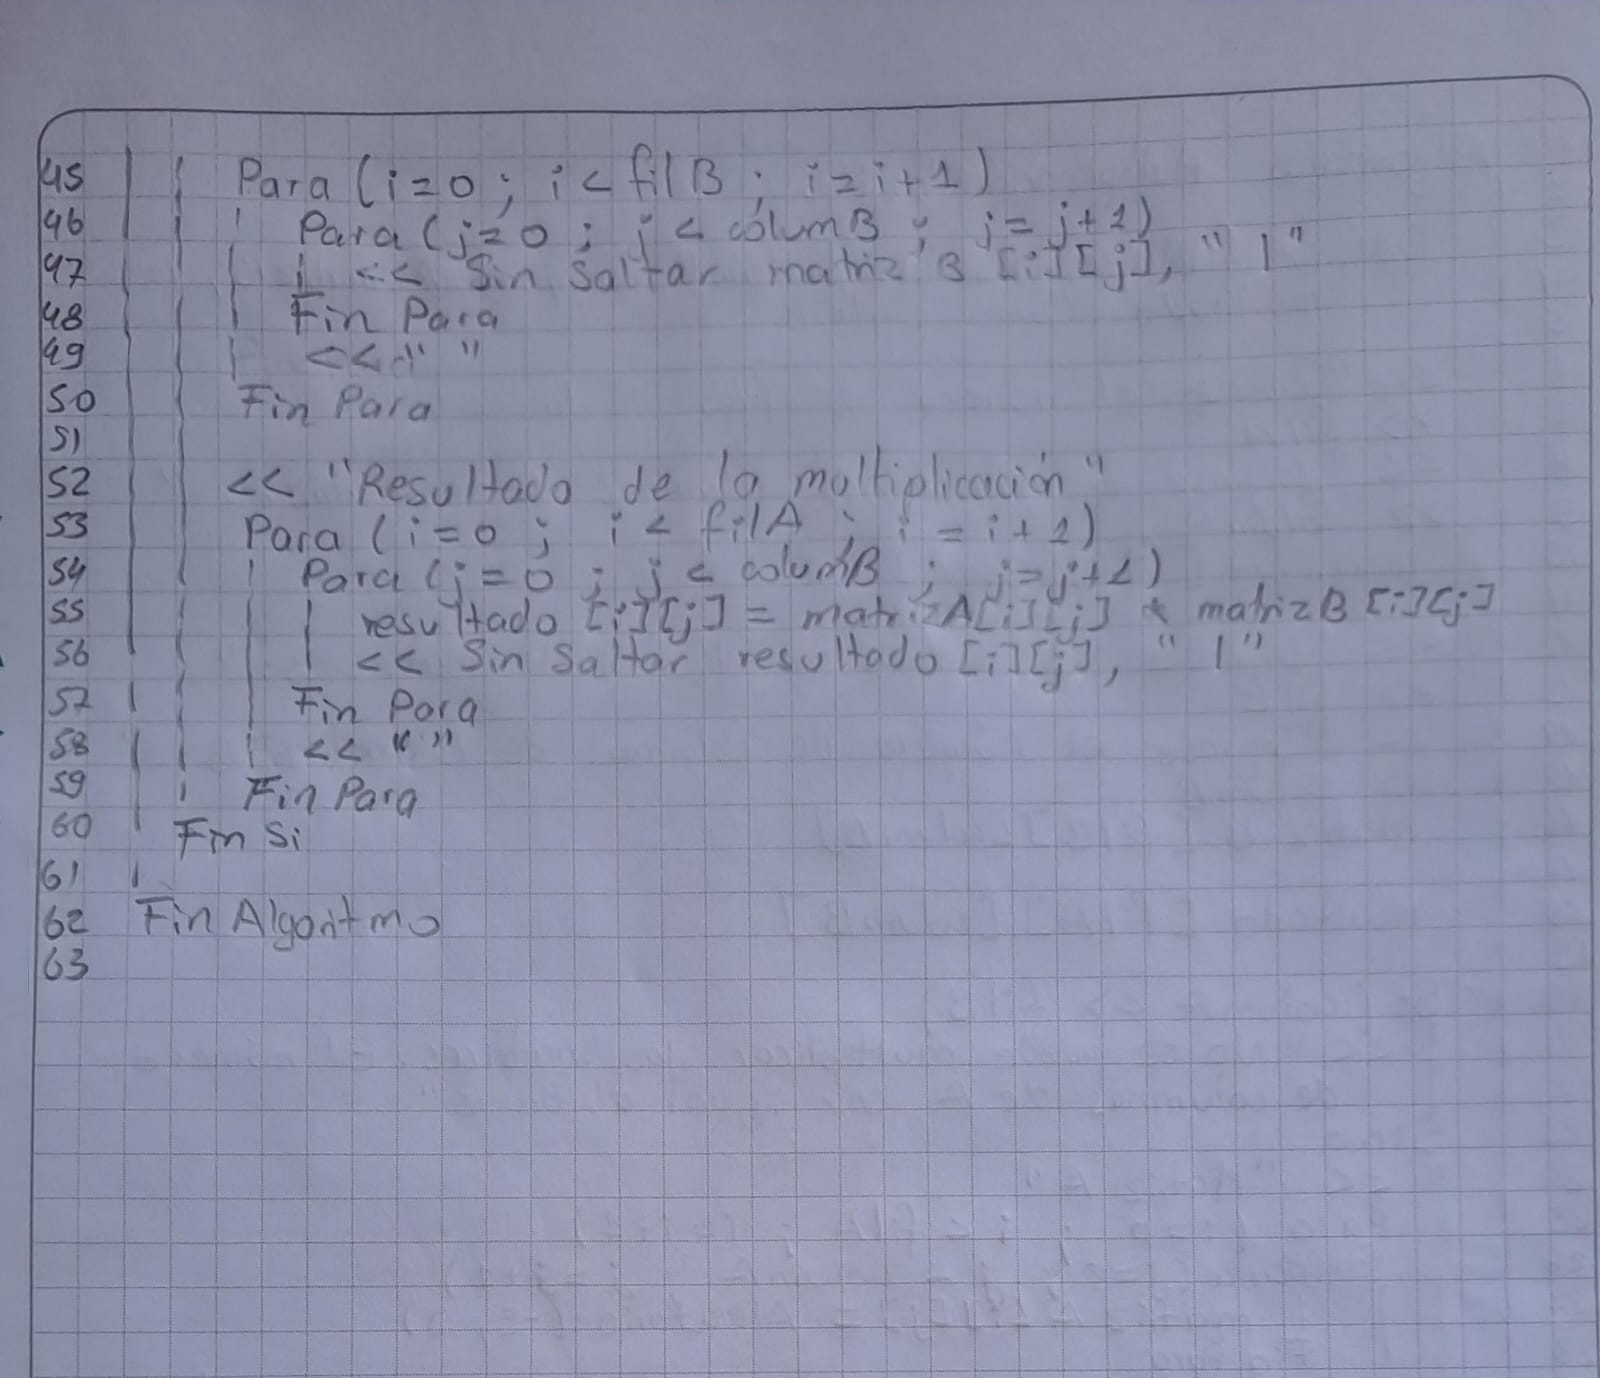 45 Para (i=0 ; i < filB ; i=i+1)
46 Para (j=0 ; j < columB ; j=j+1)
47 << Sin Saltar matriz B [i][j], " | "
48 Fin Para
49 << " "
50 Fin Para
51
52 << "Resultado de la multiplicación"
53 Para (i=0 ; i < filA ; i = i+1)
54 Para (j=0 ; j < columB ; j=j+1)
55 resultado [i][j] = matrizA[i][j] * matrizB [i][j]
56 << Sin Saltar resultado [i][j], " | "
57 Fin Para
58 << " "
59 Fin Para
60 Fin Si
61
62 Fin Algoritmo
63